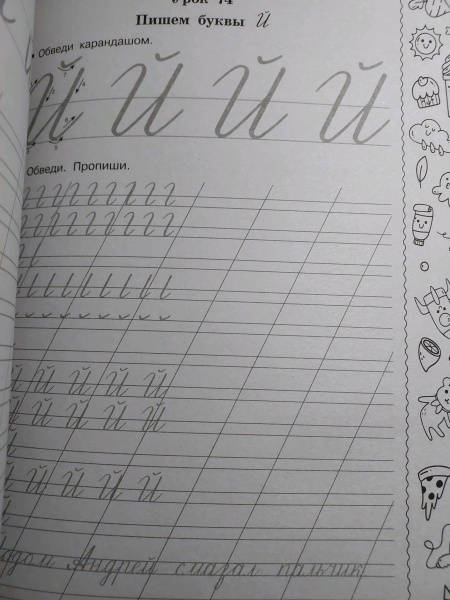 Урок 14
Пишем буквы Й
• Обведи карандашом.
Й Й Й Й
Обведи. Пропиши.
Й Й Й Й Й
Й Й Й Й Й
Й Й Й Й Й
Йодом Андрей смазал пальчик